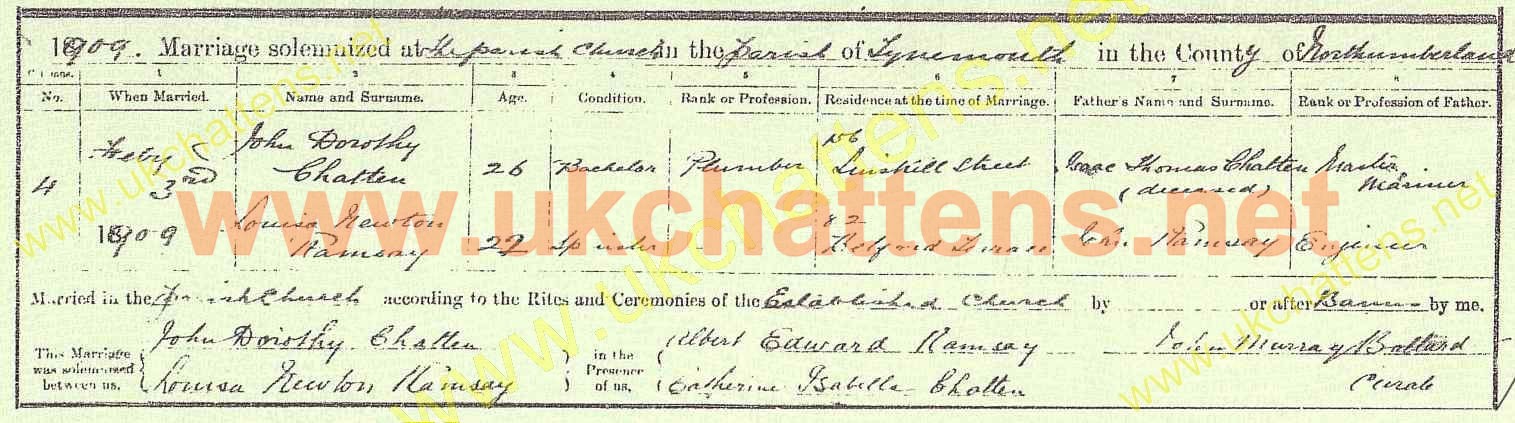 1909. Marriage solemnized at the parish Church in the Parish of Tynemouth in the County of Northumberland
1 2 3 4 5 6 7 8
No. When Married. Name and Surname. Age. Condition. Rank or Profession. Residence at the time of Marriage. Father's Name and Surname. Rank or Profession of Father.
4 3rd 1909
John Dorothy Chatten 26 Bachelor Plumber 156 Linskill Street Isaac Thomas Chatten (deceased) Master Mariner
Louisa Newton Ramsay 22 Spinster 82 Belford Terrace John Ramsay Engineer
Married in the Parish Church according to the Rites and Ceremonies of the Established Church by or after Banns by me.
This Marriage was solemnized between us, John Dorothy Chatten Louisa Newton Ramsay in the Presence of us, Albert Edward Ramsay Catherine Isabella Chatten John Murray Ballard Curate
www.ukchattens.net
www.ukchattens.net
www.ukchattens.net
www.ukchattens.net
www.ukchattens.net